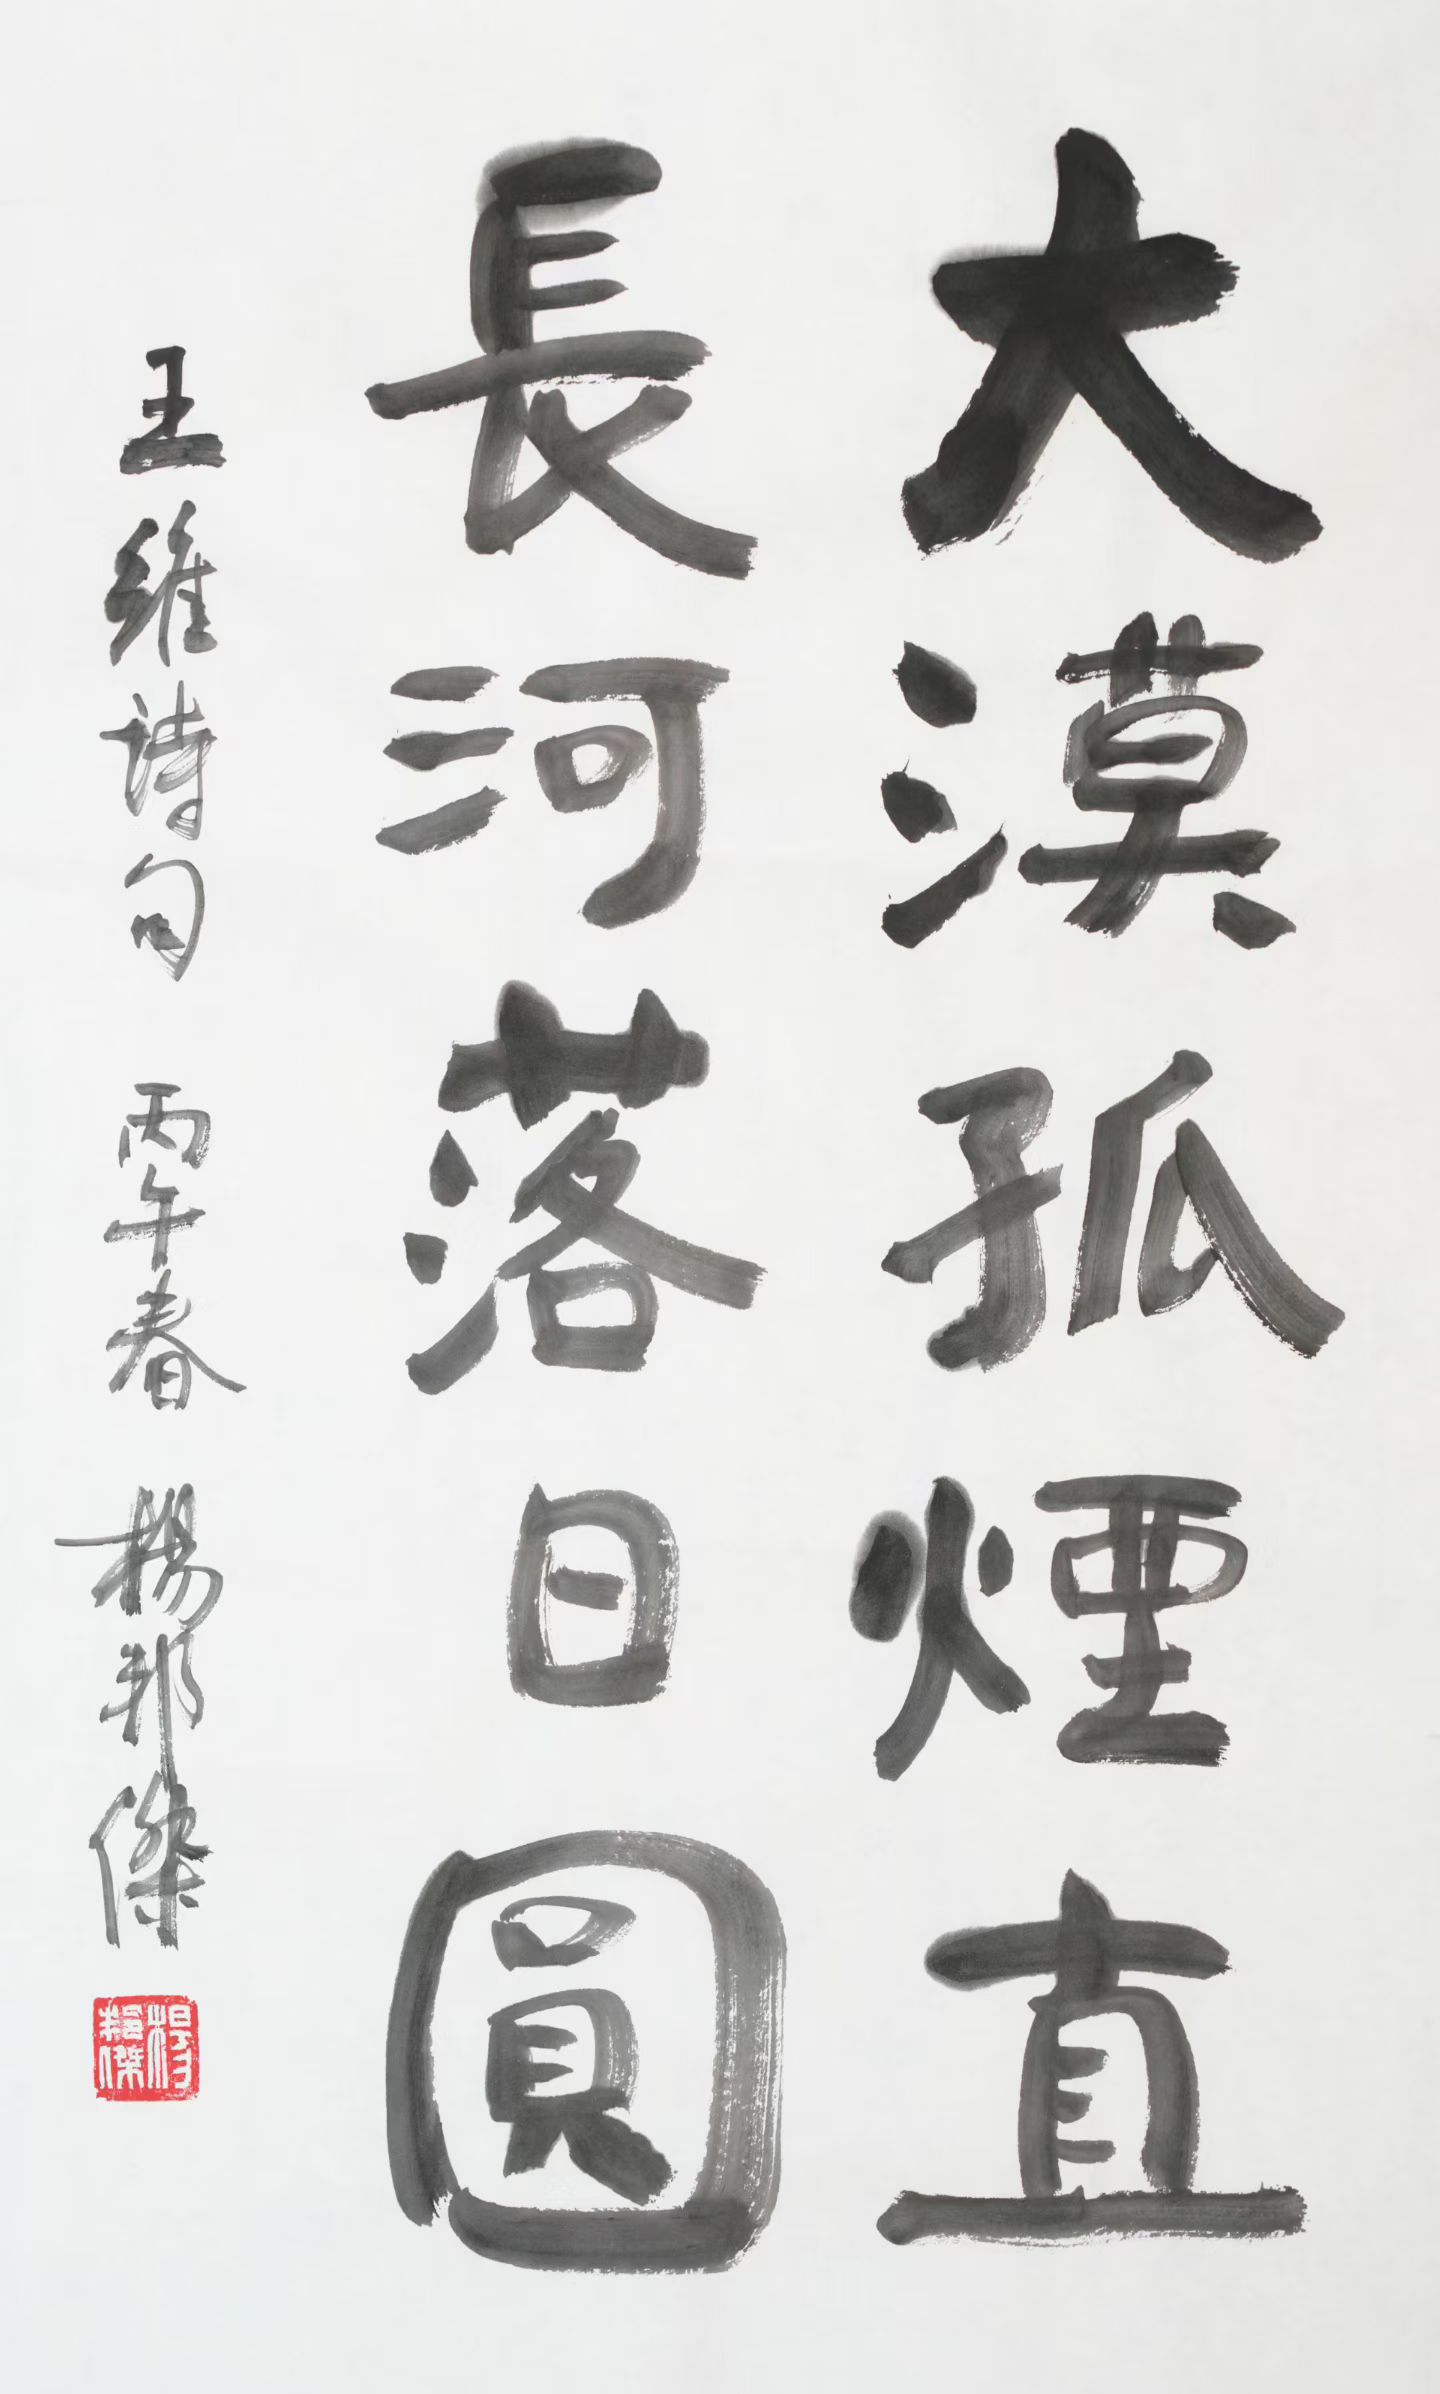 大漠孤煙直
長河落日圓
王維詩句 丙午春 楊邦傑
楊邦傑